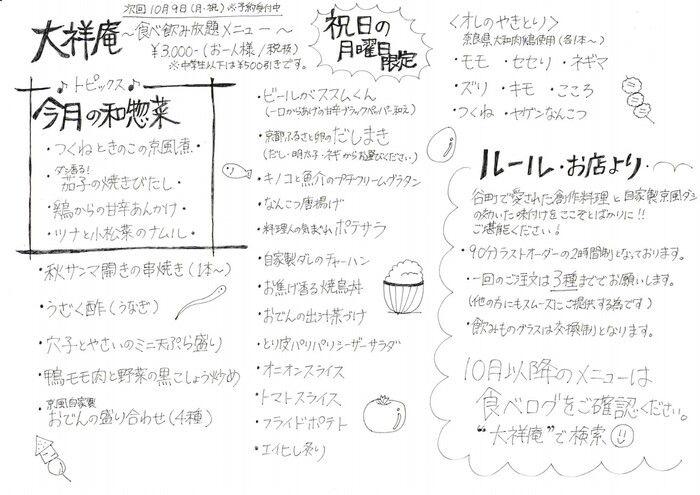 次回10月9日(月・祝)※予約受付中
大祥庵 〜食べ飲み放題メニュー〜
¥3,000-(お一人様/税抜)
※中学生以下は¥500引きです。
祝日の
月曜日
限定
♪トピックス♪
今月の和惣菜
・つくねときのこの京風煮・
ダシ香る!
・茄子の焼きびたし・
・鶏からの甘辛あんかけ・
・ツナと小松菜のナムル・
・秋サンマ開きの串焼き(1本〜)
・うざく酢(うなぎ)
・穴子とやさいのミニ天ぷら盛り
・鴨モモ肉と野菜の黒こしょう炒め
京風自家製
・おでんの盛り合わせ(4種)
・ビールがススムくん
(一口からあげの甘辛ブラックペッパー和え)
・京都ふるさと卵のだしまき
(だし・明太子・ネギからお選びください)
・キノコと魚介のプチクリームグラタン
・なんこつ唐揚げ
・料理人の気まぐれポテサラ
・自家製ダレのチャーハン
・お焦げ香る焼鳥丼
・おでんの出汁茶づけ
・とり皮パリパリシーザーサラダ
・オニオンスライス
・トマトスライス
・フライドポテト
・エイヒレ炙り
<オレのやきとり>
奈良県大和肉鶏使用(各1本〜)
・モモ ・セセリ ・ネギマ
・ズリ ・キモ ・こころ
・つくね ・ヤゲンなんこつ
ルール・お店より・
谷町で愛された創作料理と自家製京風ダシ
の効いた味付けをここぞとばかりに!!
ご堪能ください!
・90分ラストオーダーの2時間制となっております。
・一回のご注文は3種まででお願いします。
(他の方にもスムーズにご提供する為です)
・飲みものグラスは交換制となります。
10月以降のメニューは
食べログをご確認ください。
"大祥庵"で検索